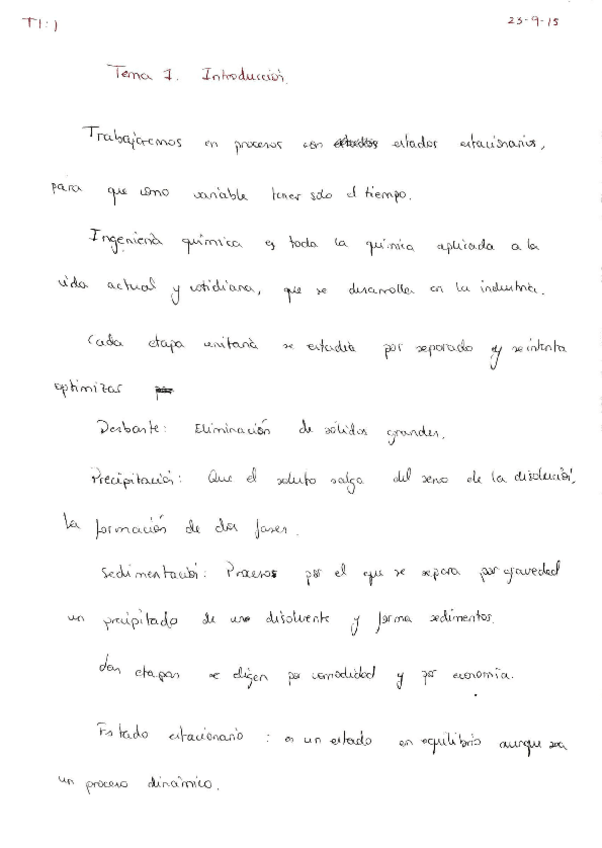 T1:1
23-9-15
Tema 1. Introducción.
Trabajaremos en procesos con estados estacionarios,
para que como variable tener solo el tiempo.
Ingeniería química es toda la química aplicada a la
vida actual y cotidiana, que se desarrolla en la industria.
Cada etapa unitaria se estudia por separado y se intenta
optimizar
Desbaste: Eliminación de sólidos grandes.
Precipitación: Que el soluto salga del seno de la disolución,
la formación de dos fases.
Sedimentación: Proceso por el que se separa por gravedad
un precipitado de un disolvente y forma sedimentos.
Las etapas se eligen por comodidad y por economía.
Estado estacionario : es un estado en equilibrio aunque sea
un proceso dinámico.